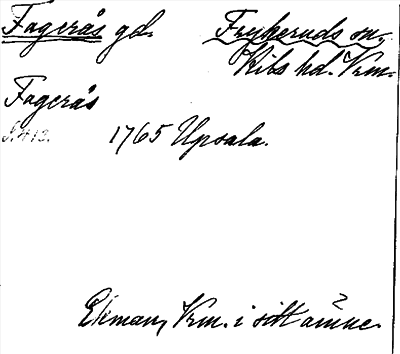 Fagerås gd. Frykeruds sn,
Kils hd. Vrm.
Fagerås
1765 Upsala.
Ekman, Vrm. i sitt ämne.